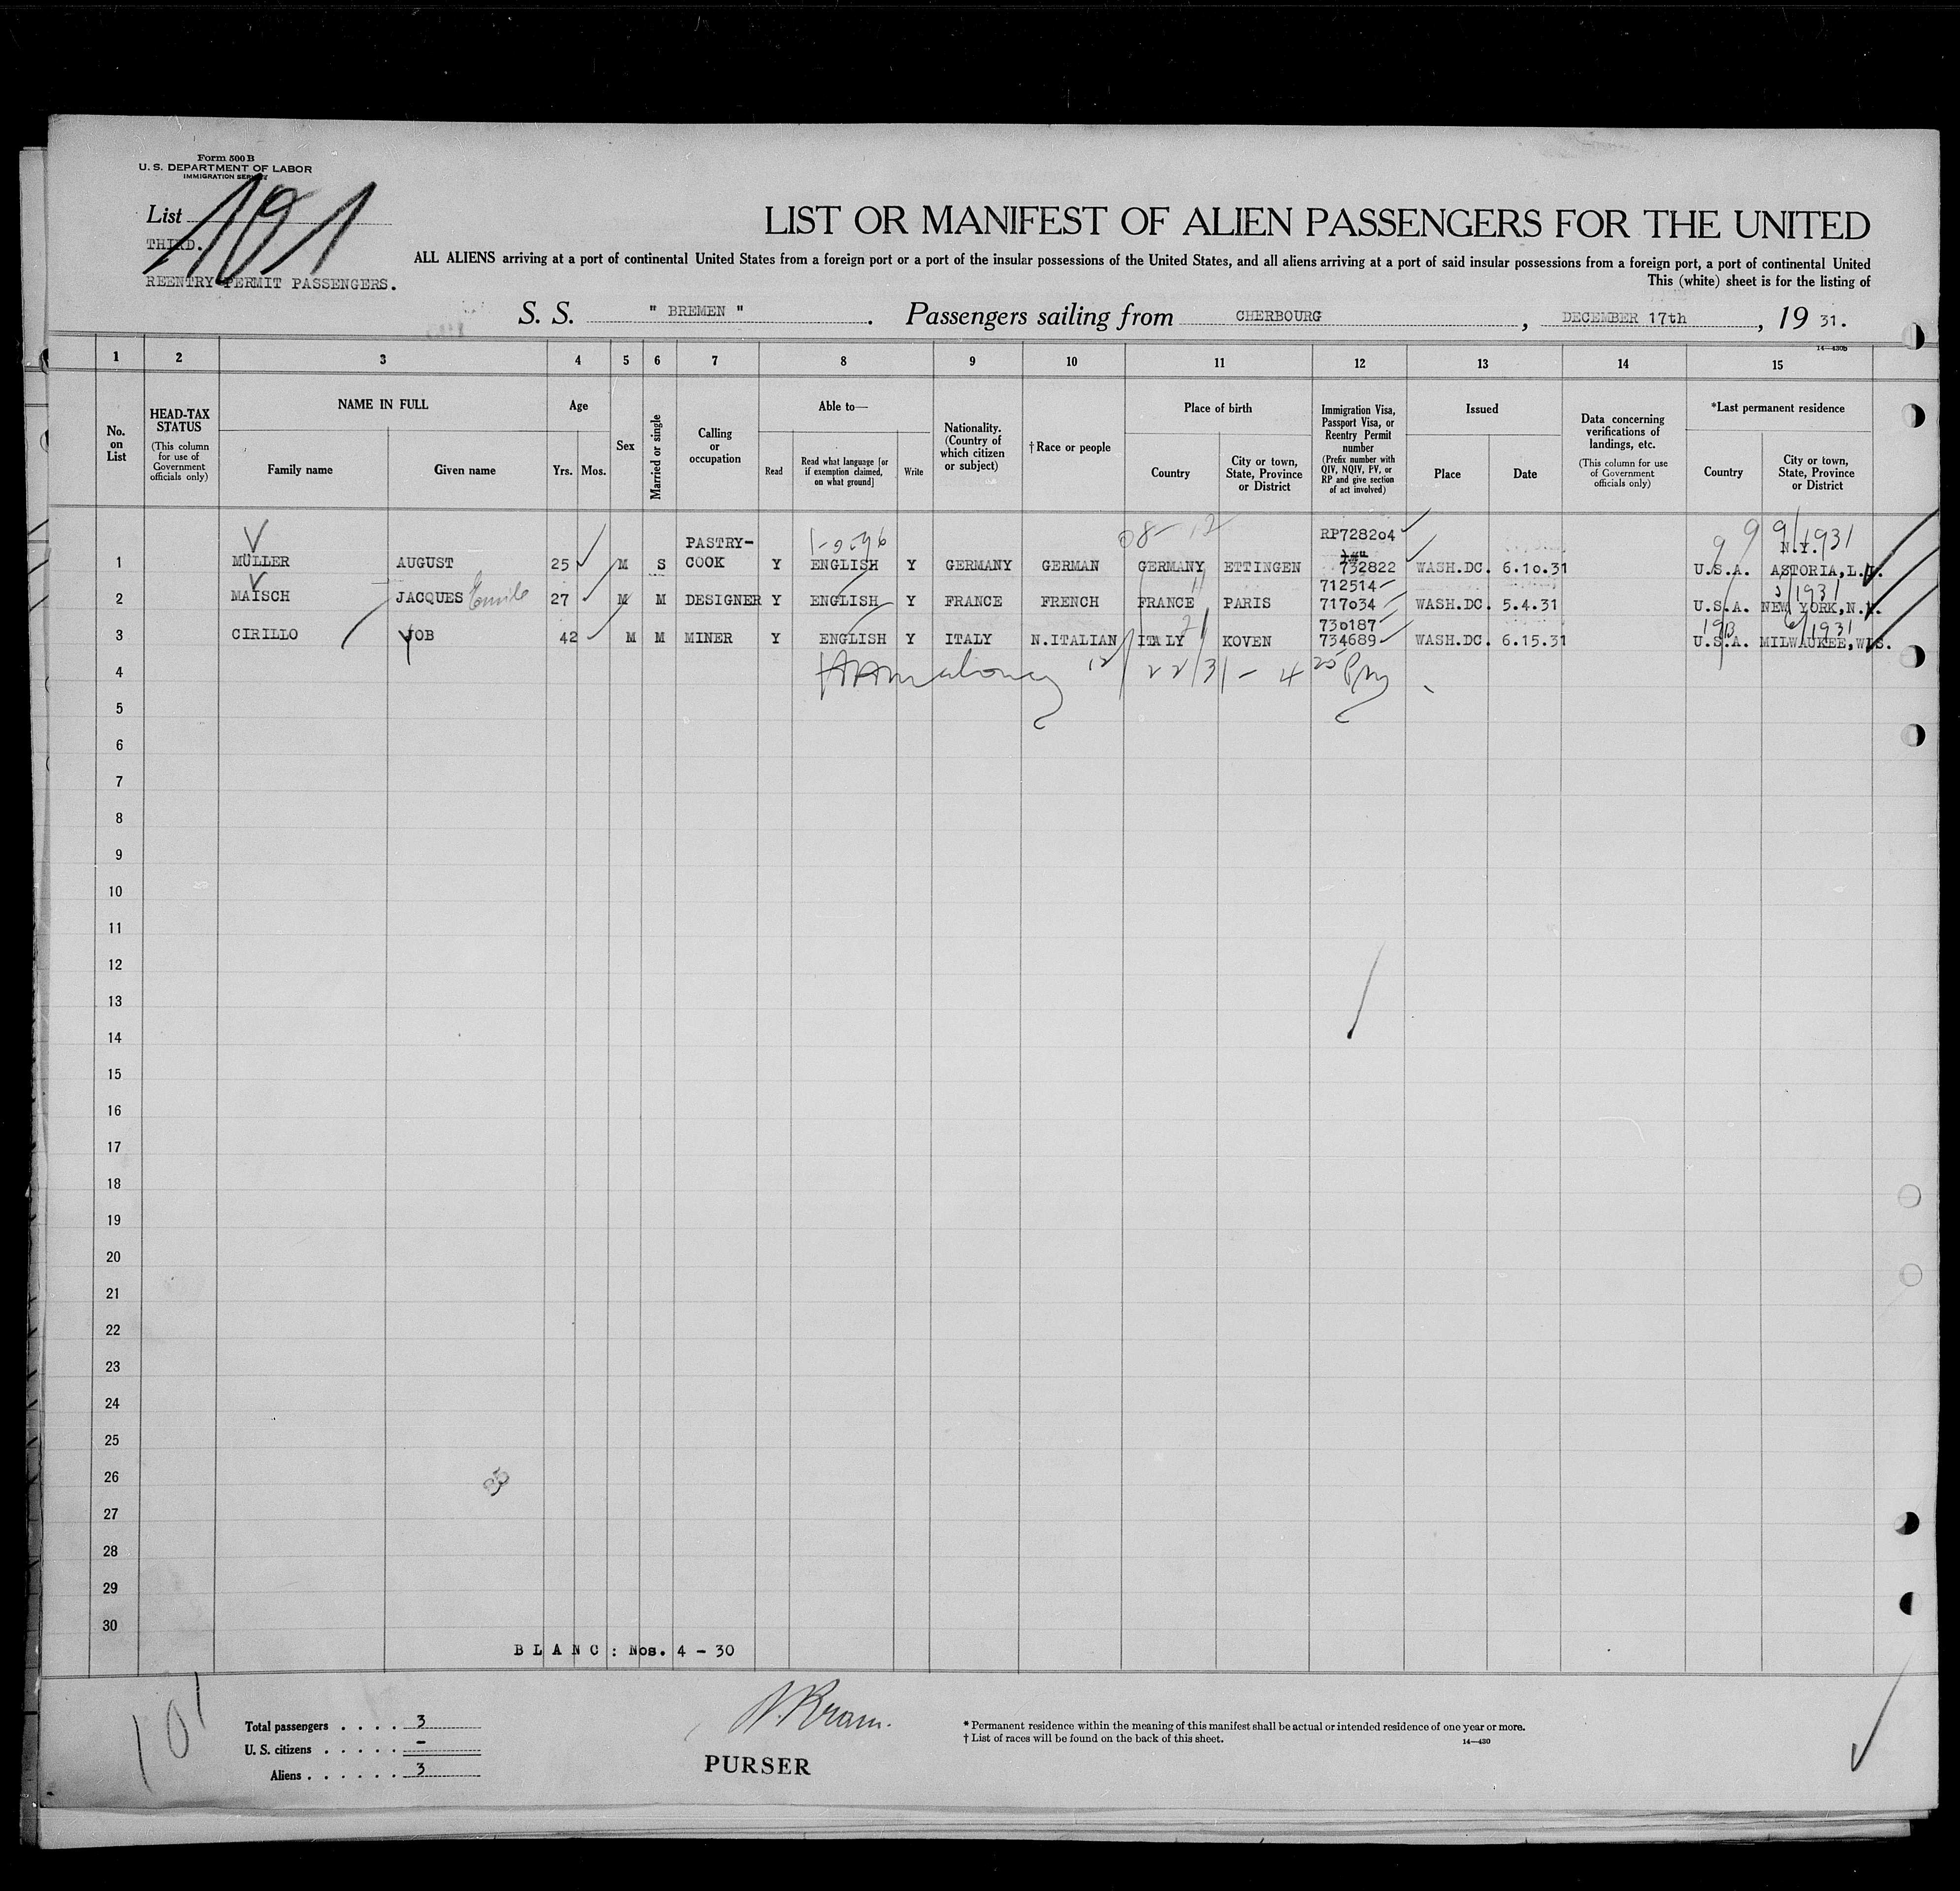 Form 500 B
U. S. DEPARTMENT OF LABOR
IMMIGRATION SERVICE
List 101
THIRD.
REENTRY PERMIT PASSENGERS.
LIST OR MANIFEST OF ALIEN PASSENGERS FOR THE UNITED
ALL ALIENS arriving at a port of continental United States from a foreign port or a port of the insular possessions of the United States, and all aliens arriving at a port of said insular possessions from a foreign port, a port of continental United
This (white) sheet is for the listing of
S. S. " BREMEN " . Passengers sailing from CHERBOURG , DECEMBER 17th , 19 31.
14—430b
1 2 3 4 5 6 7 8 9 10 11 12 13 14 15
No. on List
HEAD-TAX STATUS (This column for use of Government officials only)
NAME IN FULL
Family name Given name
Age
Yrs. Mos.
Sex
Married or single
Calling or occupation
Able to—
Read
Read what language [or if exemption claimed, on what ground]
Write
Nationality. (Country of which citizen or subject)
† Race or people
Place of birth
Country
City or town, State, Province or District
Immigration Visa, Passport Visa, or Reentry Permit number (Prefix number with QIV, NQIV, PV, or RP and give section of act involved)
Issued
Place Date
Data concerning verifications of landings, etc. (This column for use of Government officials only)
*Last permanent residence
Country
City or town, State, Province or District
08-12 RP728204 9 9/1931
PASTRY- N.Y.
1 MÜLLER AUGUST 25 M S COOK Y ENGLISH Y GERMANY GERMAN GERMANY ETTINGEN 732822 WASH.DC. 6.10.31 U.S.A. ASTORIA, L.I.
712514 /1931
2 MAISCH JACQUES Emile 27 M M DESIGNER Y ENGLISH Y FRANCE FRENCH FRANCE PARIS 717034 WASH.DC. 5.4.31 U.S.A. NEW YORK, N.Y.
730187 1913 6/1931
3 CIRILLO JOB 42 M M MINER Y ENGLISH Y ITALY N.ITALIAN ITALY KOVEN 734689 WASH.DC. 6.15.31 U.S.A. MILWAUKEE, WIS.
4 12/22/31 - 4 25 PM
5
6
7
8
9
10
11
12
13
14
15
16
17
18
19
20
21
22
23
24
25
26
27
28
29
30
BLANC: Nos. 4 - 30
101
Total passengers . . . . 3
U. S. citizens . . . . . -
Aliens . . . . . . 3
PURSER
* Permanent residence within the meaning of this manifest shall be actual or intended residence of one year or more.
† List of races will be found on the back of this sheet.
14—430